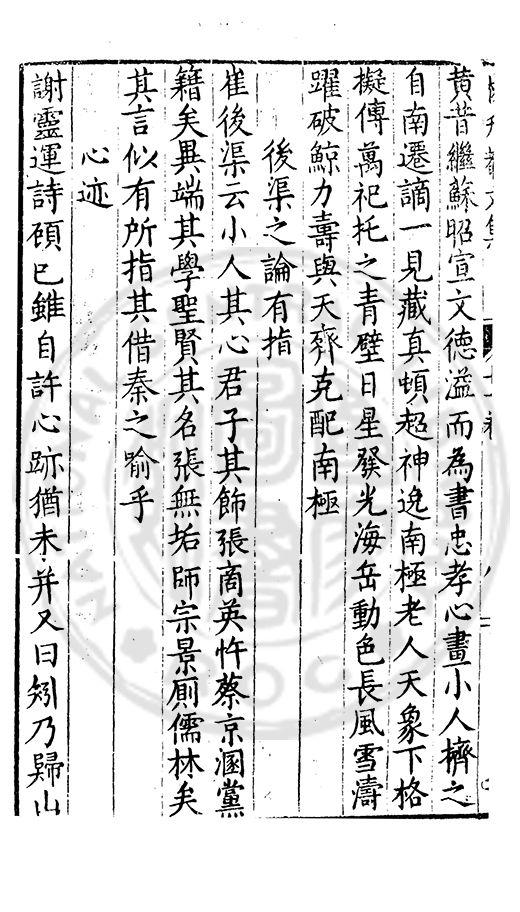 黄昔繼蘇昭宣文德溢而為書忠孝心畫小人擠之
自南遷謫一見藏真頓超神逸南極老人天象下格
擬傳萬祀托之青壁日星發光海岳動色長風雪濤
躍破鯨力壽與天齊克配南極
後渠之論有指
崔後渠云小人其心君子其飾張商英忤蔡京溷黨
籍矣異端其學聖賢其名張無垢師宗景厠儒林矣
其言似有所指其借秦之喻乎
心迹
謝靈運詩碩已雖自許心跡猶未并又曰矧乃歸山